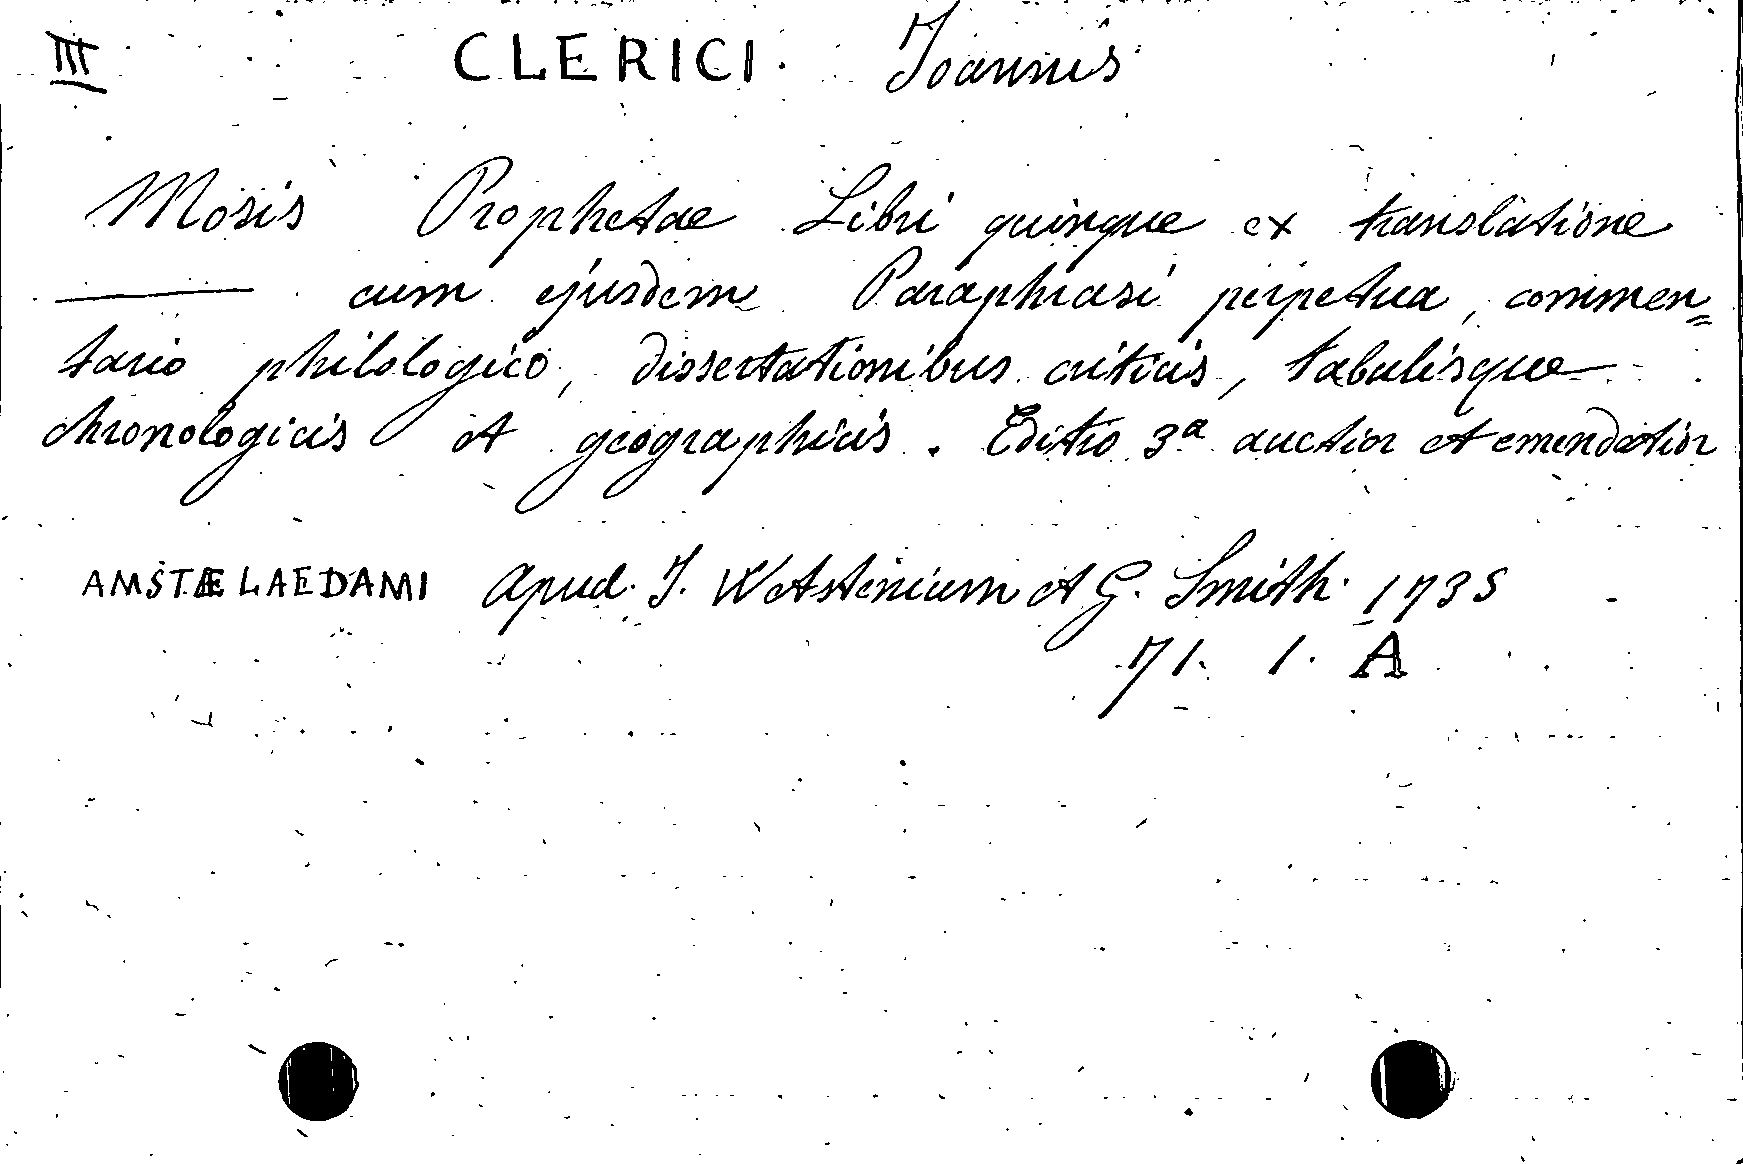 III CLERICI. Joannis
Mosis Prophetae Libri quinque ex translatione
——— cum ejusdem Paraphrasi perpetua, commen=
tario philologico, dissertationibus criticis, tabulisque
chronologicis et geographicis. Editio 3a auctior et emendatior
AMSTÆLAEDAMI Apud. J. Wetstenium et G. Smith. 1735
71. 1. A